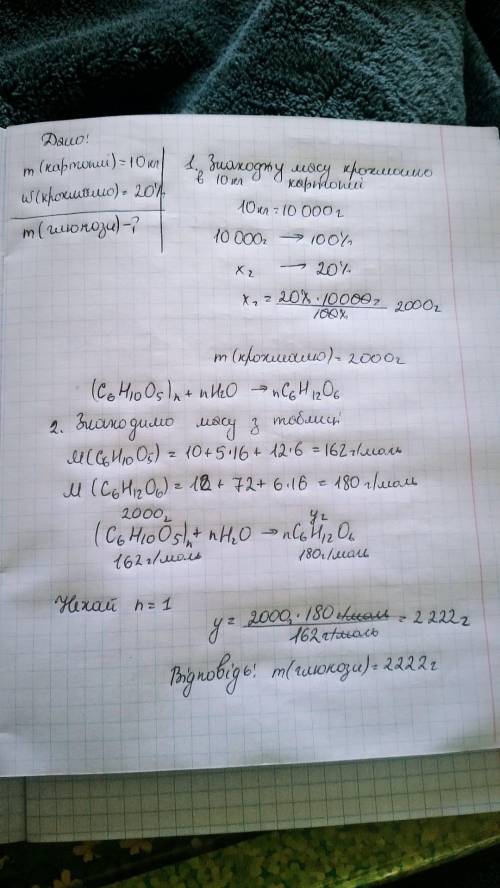 Дано!
m(картоплі) = 10 кг
w(крохмалю) = 20%
m(глюкози) - ?
1. Знаходжу масу крохмалю
в 10 кг картоплі
10 кг = 10 000 г
10 000г → 100%
x г → 20%
x г = 20% · 10000 г / 100% 2000г
m(крохмалю) = 2000г
(C6H10O5)n + nH2O → nC6H12O6
2. Знаходимо масу з таблиці
M(C6H10O5) = 10 + 5·16 + 12·6 = 162 г/моль
M (C6H12O6) = 12 + 72 + 6·16 = 180 г/моль
2000г y г
(C6H10O5)n + nH2O → nC6H12O6
162 г/моль 180 г/моль
Нехай n = 1
y = 2000 · 180 г/моль / 162 г/моль = 2222 г
Відповідь! m(глюкози) = 2222 г